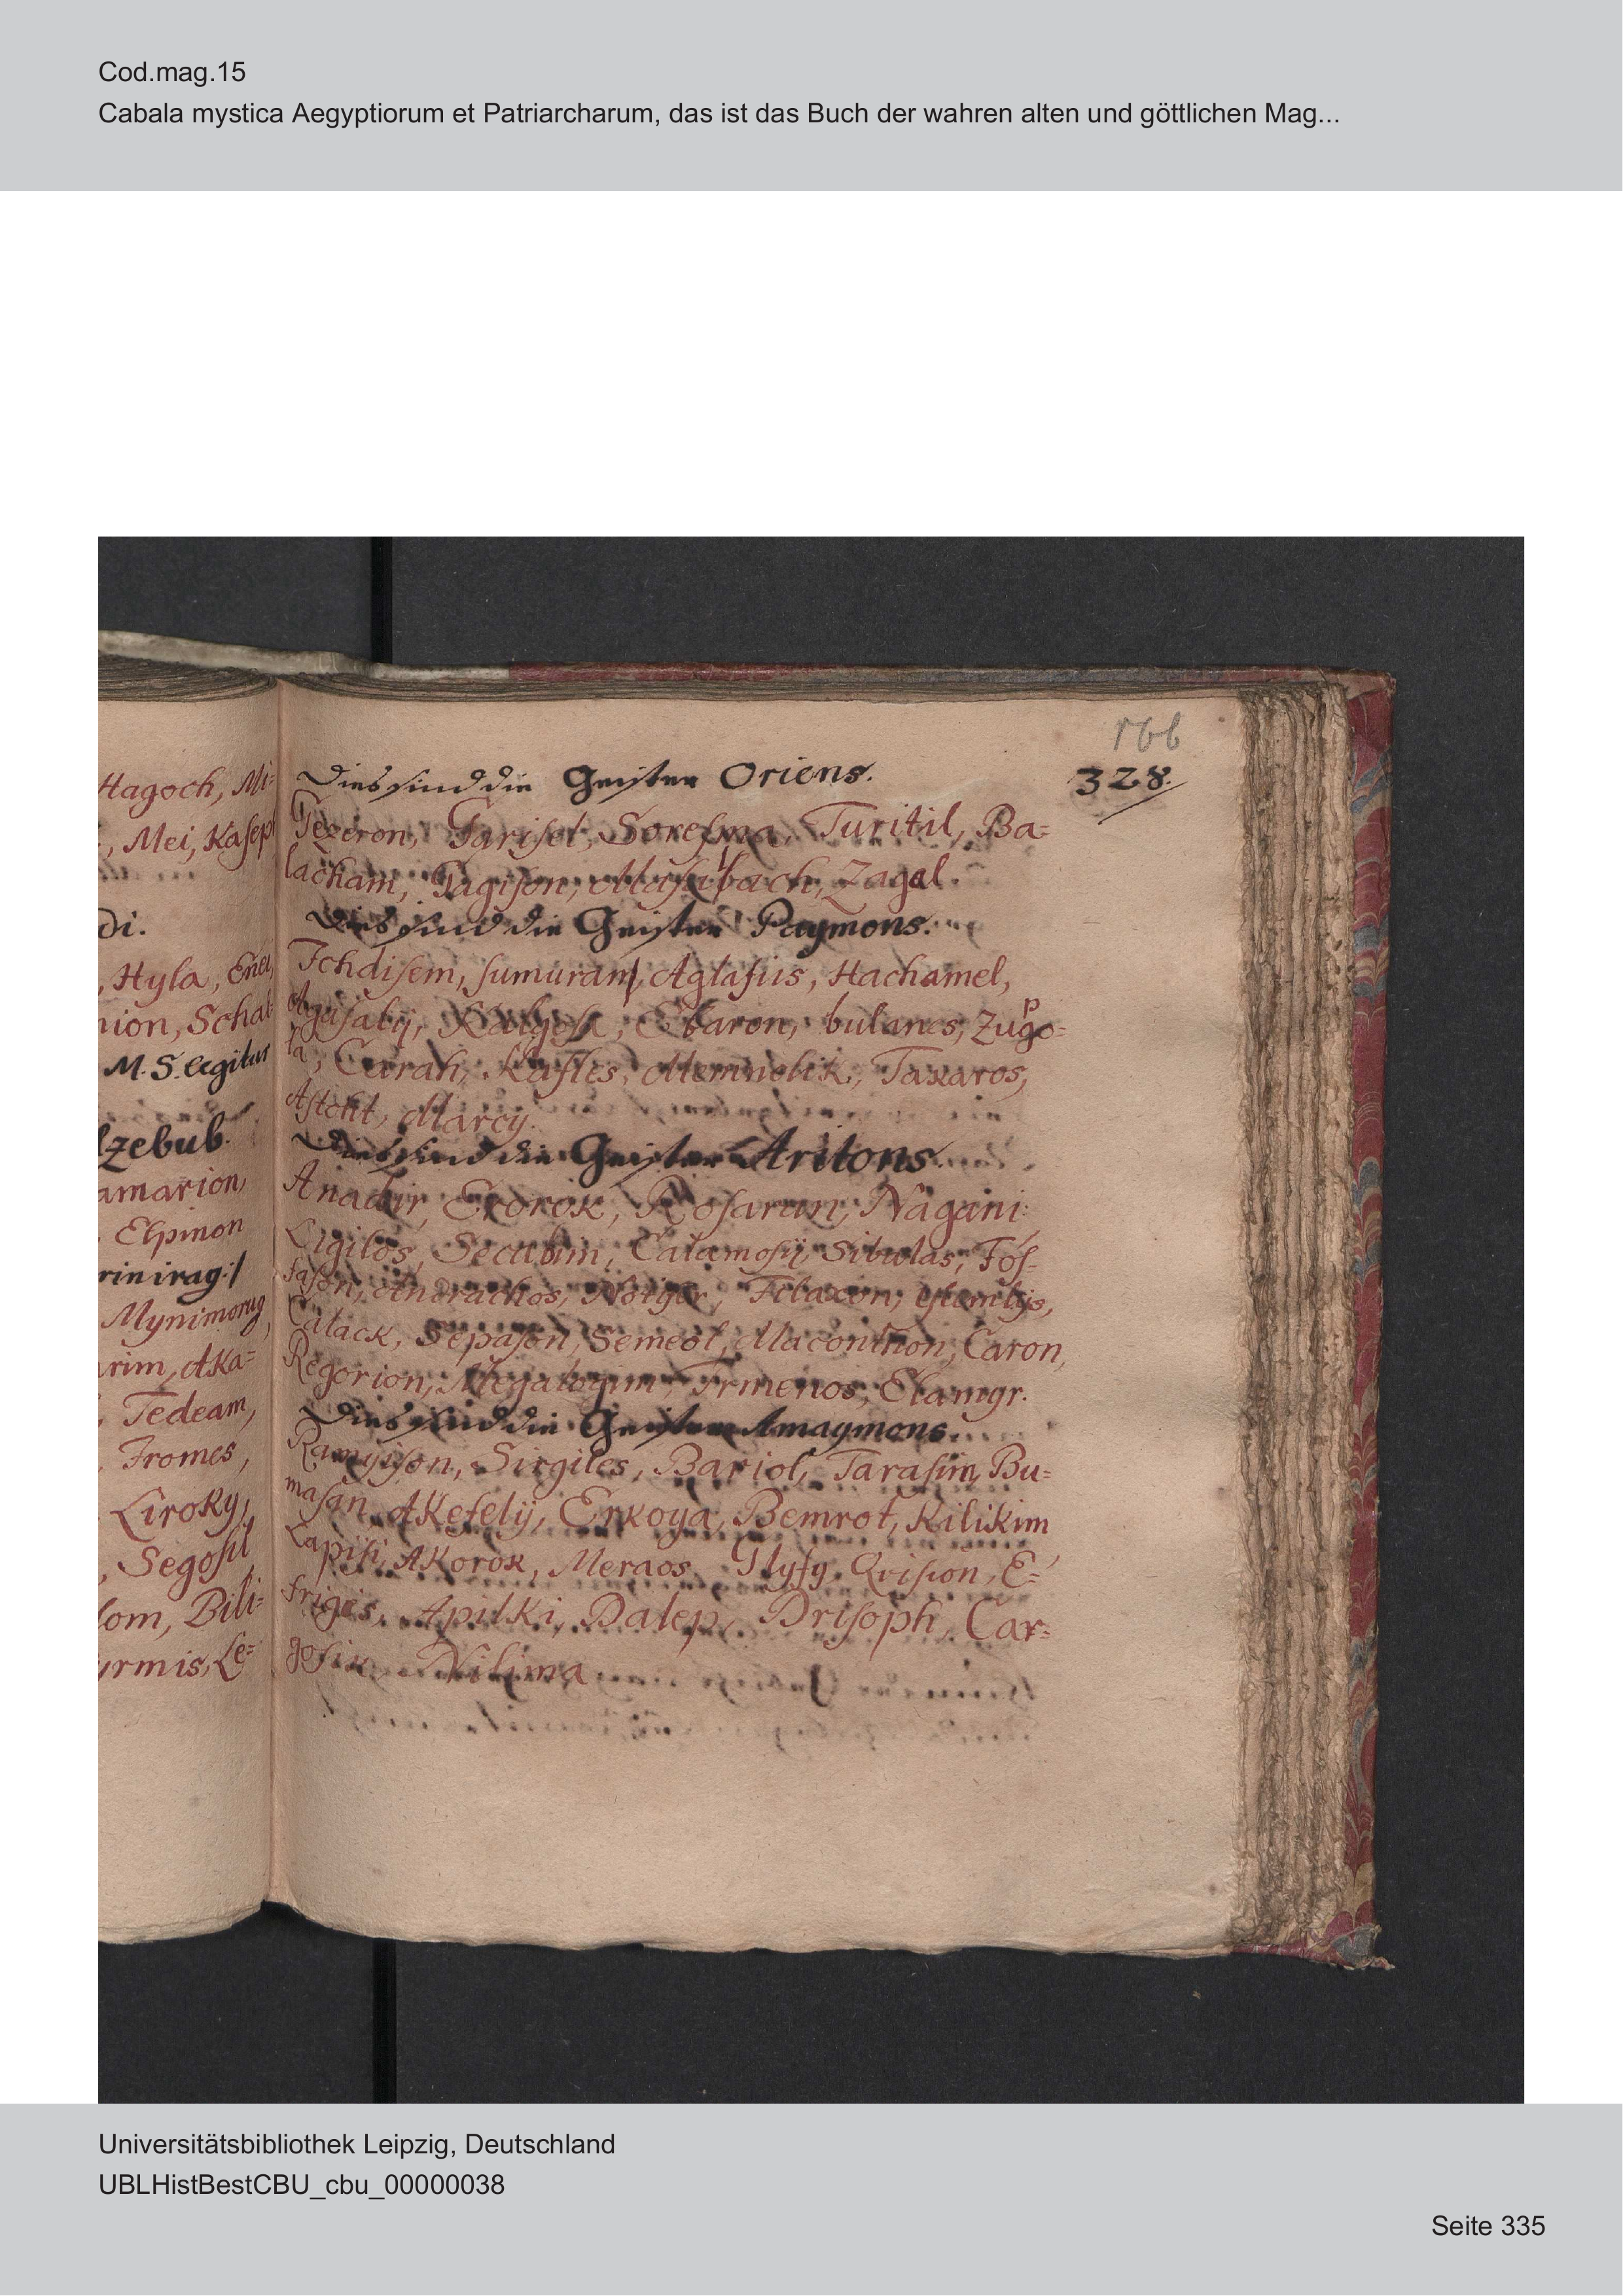 Cod.mag.15
Cabala mystica Aegyptiorum et Patriarcharum, das ist das Buch der wahren alten und göttlichen Mag...
166
328.
Hagoch, Mi-
, Mei, Kasep
di.
, Hyla, Enei
nion, Schat-
M. S. legitur
lzebub.
amarion,
Elpinon
rinirag:/
Mynimorug,
arim, Aka=
Tedeam,
Fromes,
Liroky,
, Segosil
lom, Bili=
yrmis, Le=
Dies sind die Geister Oriens.
Gezeron, Sarisel, Soresma, Turitil, Ba=
lacham, Gagison, Mafalbach, Zagal.
Dies sind die Geister Paymons.
Ichdisem, sumuran, Aglasius, Hachamel,
Agasaly, Kalgosa, Ebaron, bulanes, Zugo=
p
la, Carah, Kaflles, Memnolik, Taxaros,
Astolit, Marcy.
Dies sind die Geister Aritons.
Anadir, Exorok, Rosaran, Nagani
Ligilos, Secabim, Calamosy, Sibolas, Fos-
fason, Andrachos, Notiger, Filaxon,
Calack, Sepason, Semeol, Maconthon, Caron,
Regorion, Megalogim, Irmenos, Elamyr.
Dies sind die Geister Amaymons.
Ramyison, Sirgiles, Bariol, Tarasim, Bu=
masan, Akesely, Erkoya, Bemrot, Kilikim
Lapisi, Akorok, Meraos, Glysy, Qvision, E=
friges, Apilki, Dalep, Drisoph, Car=
gosik, Nilima
Universitätsbibliothek Leipzig, Deutschland
UBLHistBestCBU_cbu_00000038
Seite 335